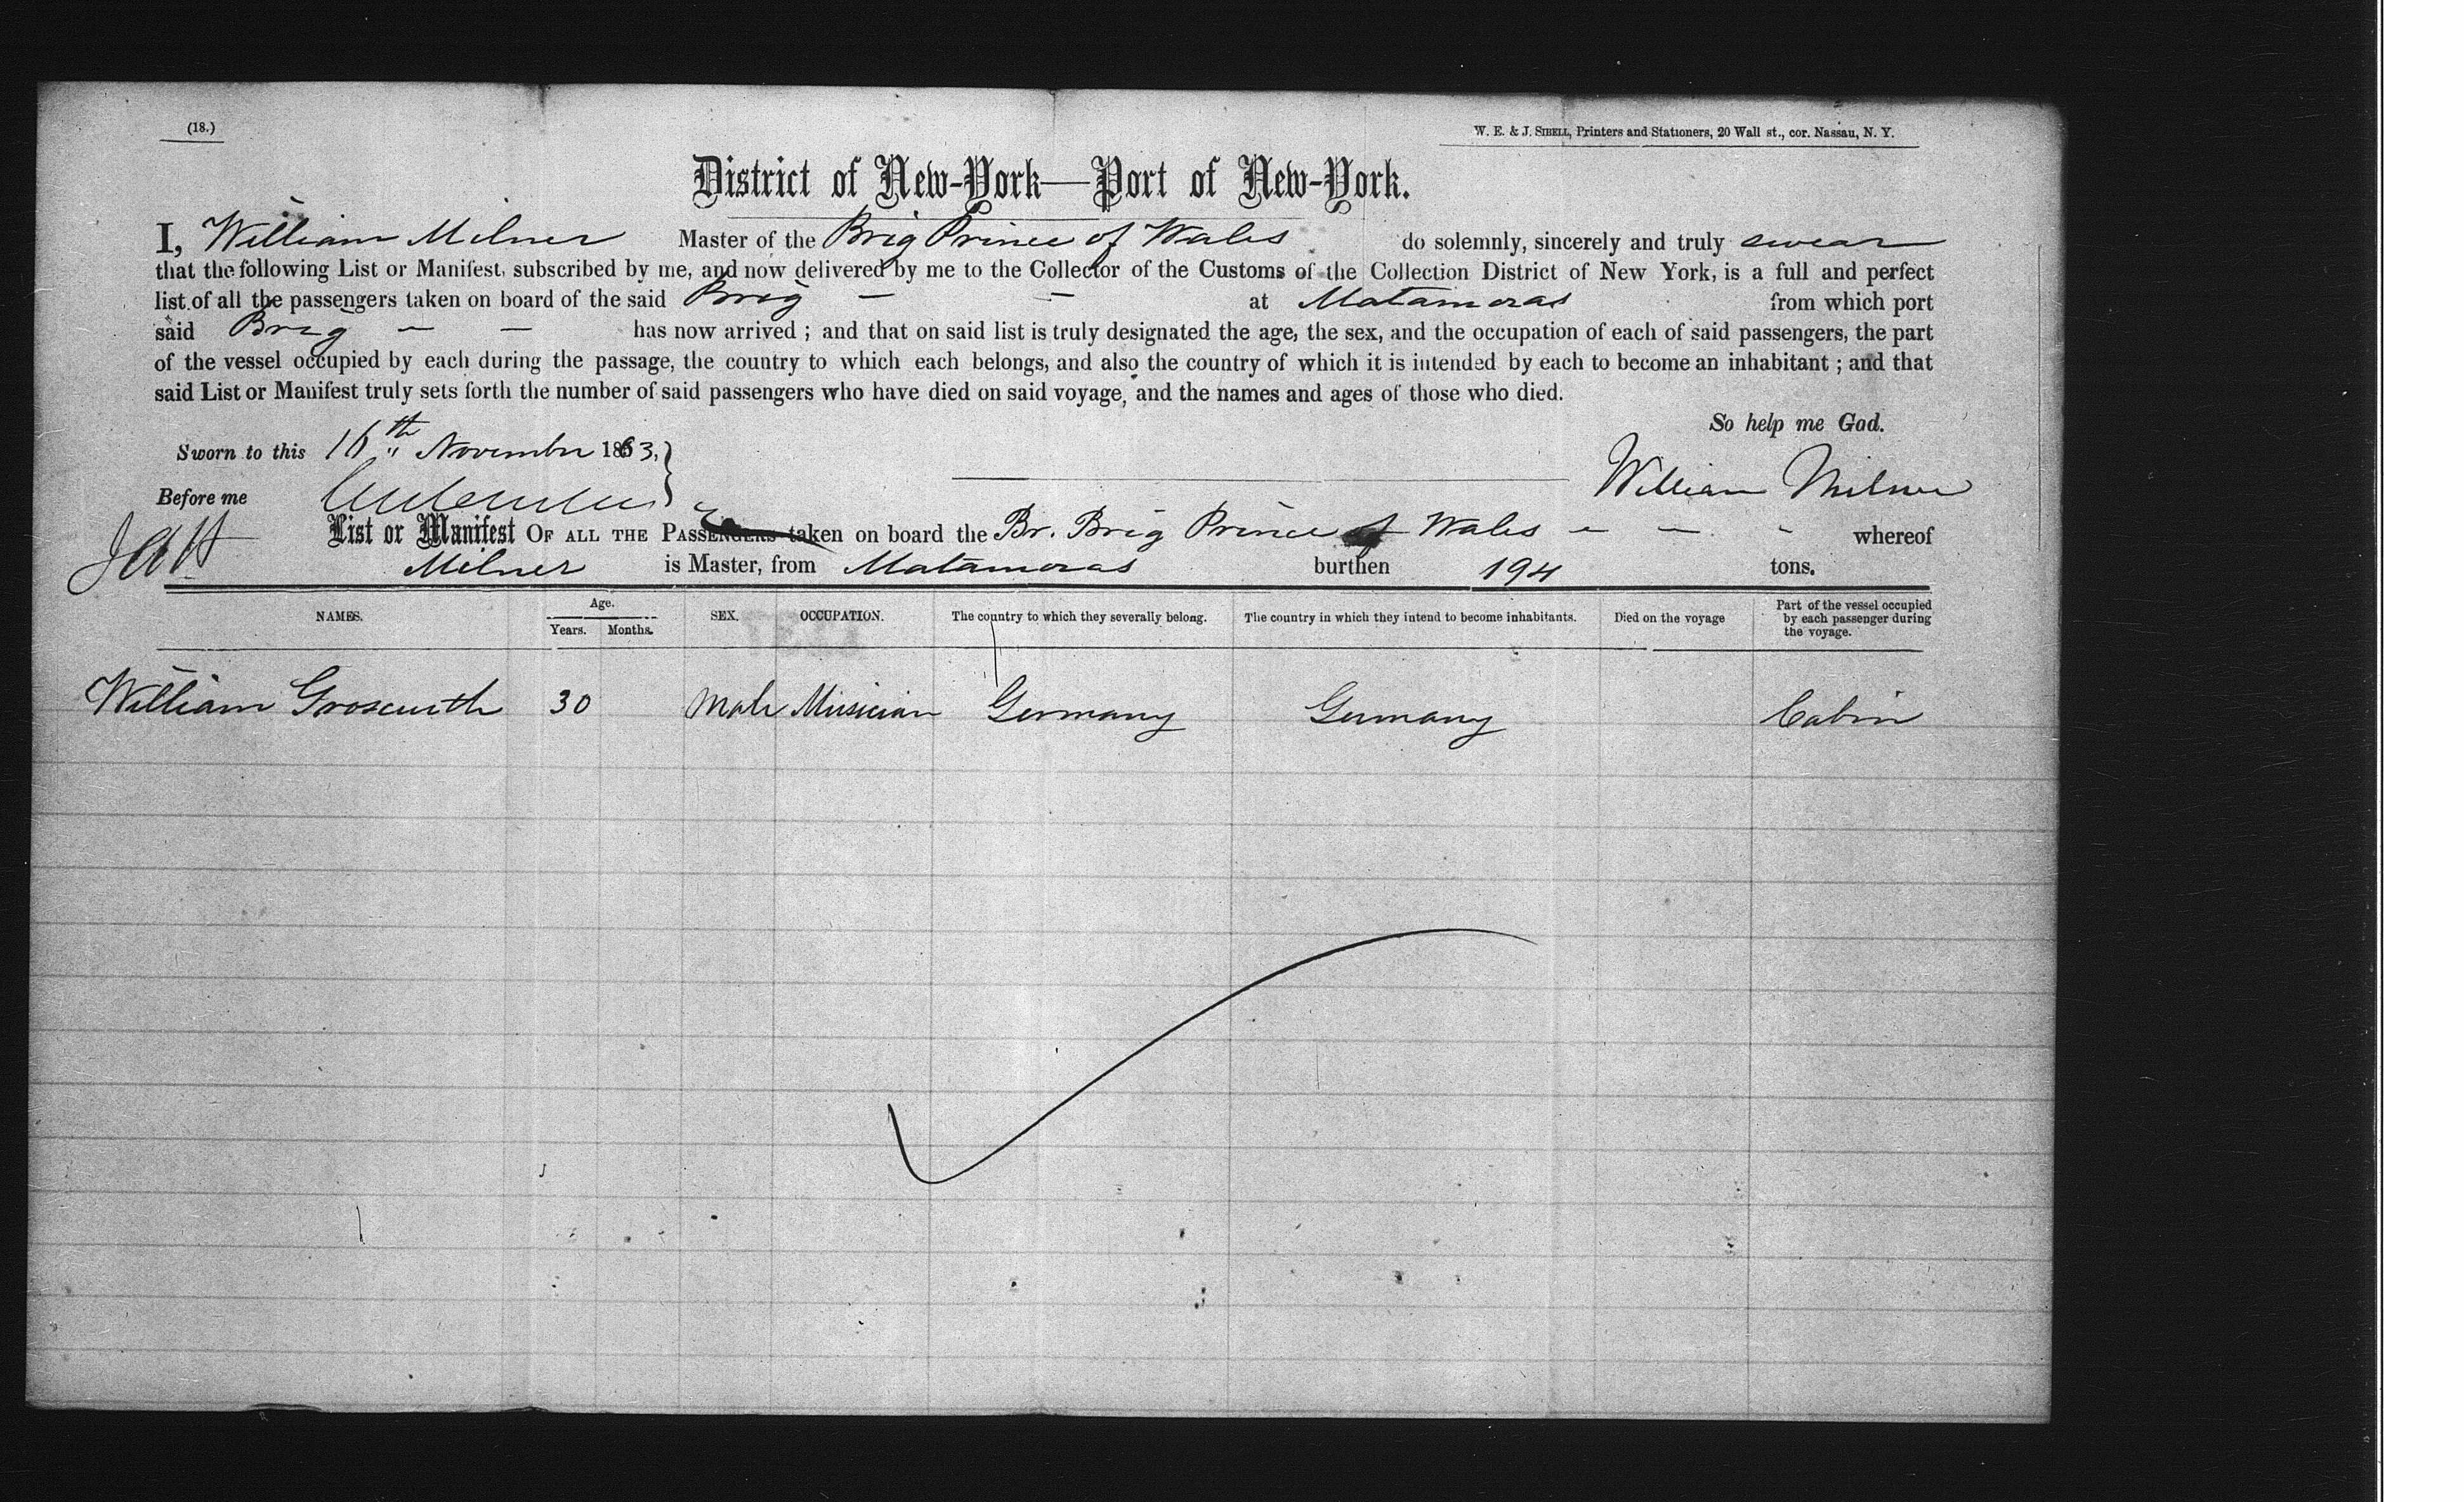 (18.)
W. E. & J. SIBELL, Printers and Stationers, 20 Wall st., cor. Nassau, N. Y.
District of New-York—Port of New-York.
I, William Milner Master of the Brig Prince of Wales do solemnly, sincerely and truly swear
that the following List or Manifest, subscribed by me, and now delivered by me to the Collector of the Customs of the Collection District of New York, is a full and perfect
list of all the passengers taken on board of the said Brig - - at Matamoras from which port
said Brig - - has now arrived ; and that on said list is truly designated the age, the sex, and the occupation of each of said passengers, the part
of the vessel occupied by each during the passage, the country to which each belongs, and also the country of which it is intended by each to become an inhabitant ; and that
said List or Manifest truly sets forth the number of said passengers who have died on said voyage, and the names and ages of those who died.
So help me God.
Sworn to this 16th November 1863,
William Milner
Before me
List or Manifest OF ALL THE PASSENGERS taken on board the Br. Brig Prince of Wales - - - whereof
Milner is Master, from Matamoras burthen 194 tons.
NAMES. Age. Years. Months. SEX. OCCUPATION. The country to which they severally belong. The country in which they intend to become inhabitants. Died on the voyage Part of the vessel occupied by each passenger during the voyage.
William 30 Male Musician Germany Germany Cabin